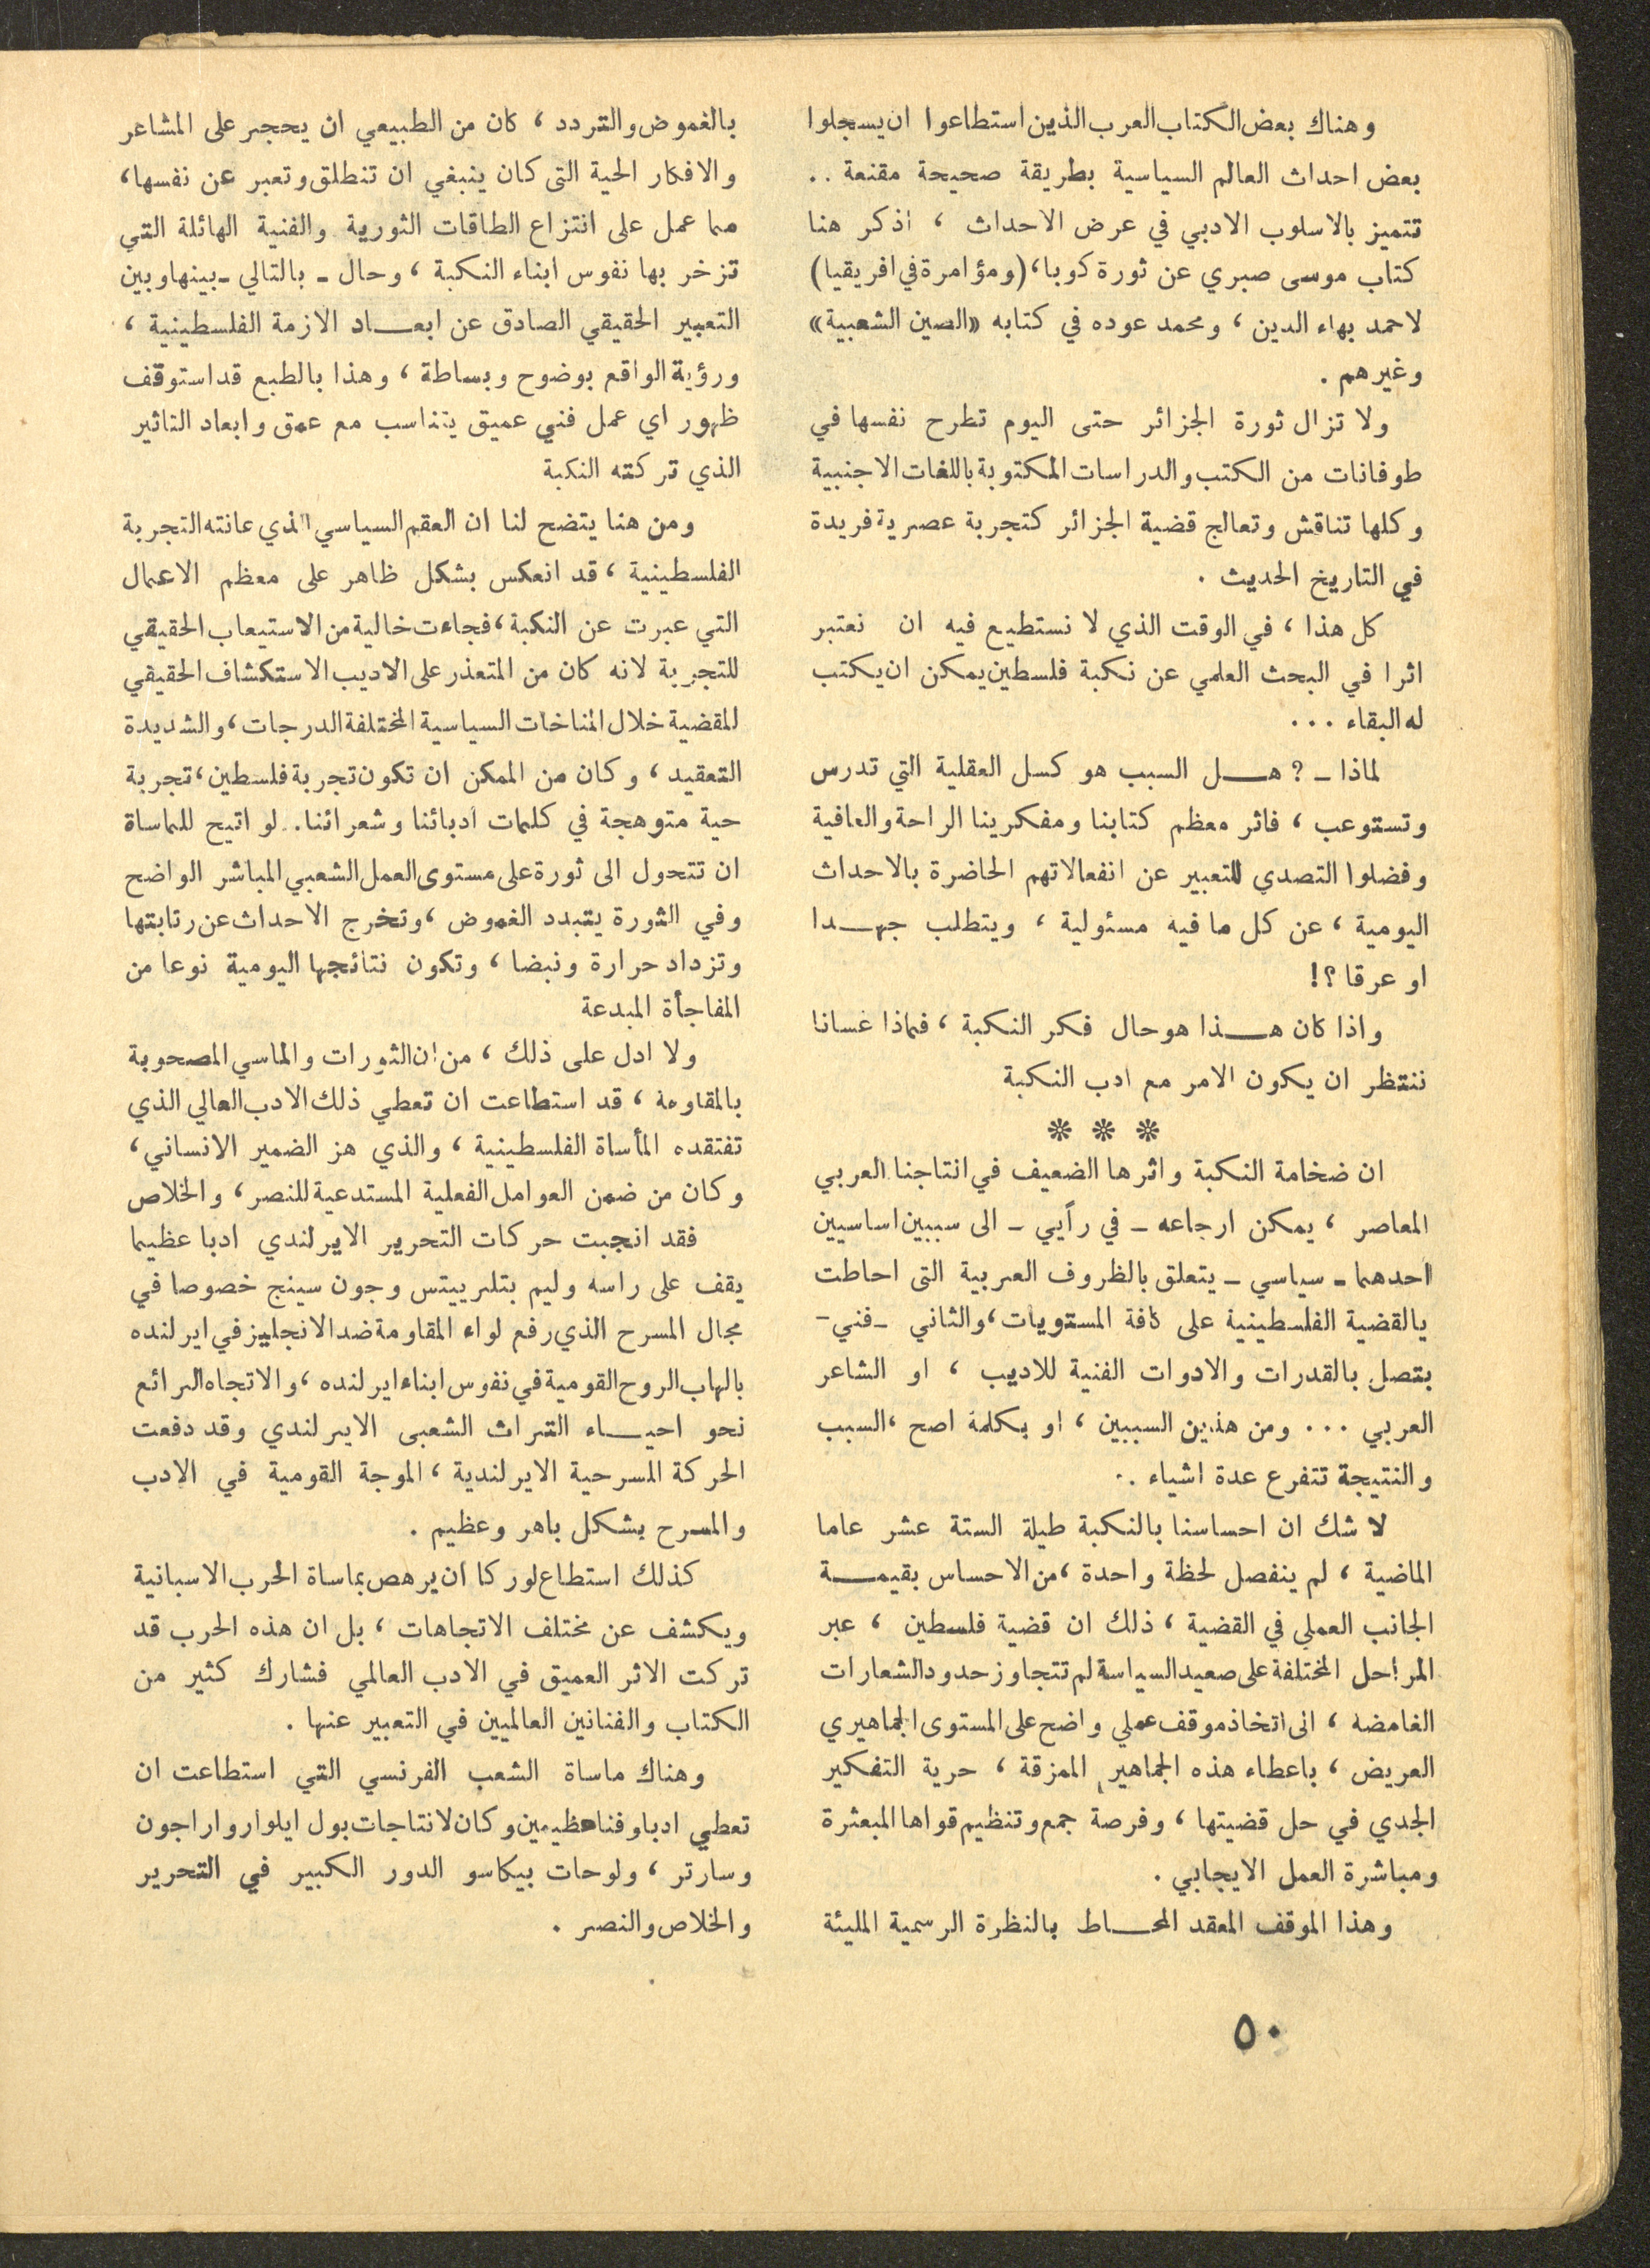 وهناك بعض الكتاب العرب الذين استطاعوا ان يسجلوا
بعض احداث العالم السياسية بطريقة صحيحة مقنعة ..
تتميز بالاسلوب الادبي في عرض الاحداث ، اذكر هنا
كتاب موسى صبري عن ثورة كوبا، (ومؤامرة في افريقيا)
لاحمد بهاء الدين ، ومحمد عوده في كتابه «الصين الشعبية»
وغيرهم .
ولا تزال ثورة الجزائر حتى اليوم تطرح نفسها في
طوفانات من الكتب والدراسات المكتوبة باللغات الاجنبية
وكلها تناقش وتعالج قضية الجزائر كتجربة عصرية فريدة
في التاريخ الحديث .
كل هذا ، في الوقت الذي لا نستطيع فيه ان نعتبر
اثرا في البحث العلمي عن نكبة فلسطين يمكن ان يكتب
له البقاء ...
لماذا - ? هــل السبب هو كسل العقلية التي تدرس
وتستوعب ، فاثر معظم كتابنا ومفكرينا الراحة والعافية
وفضلوا التصدي للتعبير عن انفعالاتهم الحاضرة بالاحداث
اليومية ، عن كل ما فيه مسئولية ، ويتطلب جهــدا
او عرقا ؟!
واذا كان هــذا هو حال فكر النكبة ، فماذا عسانا
ننتظر ان يكون الامر مع ادب النكبة
* * *
ان ضخامة النكبة واثرها الضعيف في انتاجنا العربي
المعاصر ، يمكن ارجاعه - في رأيي - الى سببين اساسيين
احدهما - سياسي - يتعلق بالظروف العربية التى احاطت
يالقضية الفلسطينية على كافة المستويات، والثاني - فني -
يتصل بالقدرات والادوات الفنية للاديب ، او الشاعر
العربي ... ومن هذين السببين ، او بكلمة اصح ، السبب
والنتيجة تتفرع عدة اشياء ..
لا شك ان احساسنا بالنكبة طيلة الستة عشر عاما
الماضية ، لم ينفصل لحظة واحدة ، من الاحساس بقيمــة
الجانب العملي في القضية ، ذلك ان قضية فلسطين ، عبر
المراحل المختلفة على صعيد السياسة لم تتجاوز حدود الشعارات
الغامضه ، الى اتخاذ موقف عملي واضح على المستوى الجماهيري
العريض ، باعطاء هذه الجماهير الممزقة ، حرية التفكير
الجدي في حل قضيتها ، وفرصة جمع وتنظيم قواها المبعثرة
ومباشرة العمل الايجابي .
وهذا الموقف المعقد المحــاط بالنظرة الرسمية المليئة
بالغموض والتردد ، كان من الطبيعي ان يحجر على المشاعر
والافكار الحية التى كان ينبغي ان تنطلق وتعبر عن نفسها ،
مما عمل على انتزاع الطاقات الثورية والفنية الهائلة التي
تزخر بها نفوس ابناء النكبة ، وحال - بالتالي - بينها وبين
التعبير الحقيقي الصادق عن ابعــاد الازمة الفلسطينية ،
ورؤية الواقع بوضوح وبساطة ، وهذا بالطبع قد استوقف
ظهور اي عمل فني عميق يتناسب مع عمق وابعاد التاثير
الذي تركته النكبة
ومن هنا يتضح لنا ان العقم السياسي الذي عانته التجربة
الفلسطينية ، قد انعكس بشكل ظاهر على معظم الاعمال
التي عبرت عن النكبة ، فجاءت خالية من الاستيعاب الحقيقي
للتجربة لانه كان من المتعذر على الاديب الاستكشاف الحقيقي
للقضية خلال المناخات السياسية المختلفة الدرجات ، والشديدة
التعقيد ، وكان من الممكن ان تكون تجربة فلسطين ، تجربة
حية متوهجة في كلمات ادبائنا وشعرائنا.. لو اتيح للماساة
ان تتحول الى ثورة على مستوى العمل الشعبي المباشر الواضح
وفي الثورة يتبدد الغموض ، وتخرج الاحداث عن رتابتها
وتزداد حرارة ونبضا ، وتكون نتائجها اليومية نوعا من
المفاجأة المبدعة
ولا ادل على ذلك ، من ان الثورات والماسي المصحوبة
بالمقاومة ، قد استطاعت ان تعطي ذلك الادب العالي الذي
تفتقده المأساة الفلسطينية ، والذي هز الضمير الانساني ،
وكان من ضمن العوامل الفعلية المستدعية للنصر ، والخلاص
فقد انجبت حركات التحرير الايرلندي ادبا عظيما
يقف على راسه وليم بتلر ييتس وجون سينج خصوصا في
مجال المسرح الذي رفع لواء المقاومة ضد الانجليز في ايرلنده
بالهاب الروح القومية في نفوس ابناء ايرلنده ، والاتجاه الرائع
نحو احيــاء التراث الشعبى الايرلندي وقد دفعت
الحركة المسرحية الايرلندية ، الموجة القومية في الادب
والمسرح بشكل باهر وعظيم .
كذلك استطاع لوركا ان يرهص بماساة الحرب الاسبانية
ويكشف عن مختلف الاتجاهات ، بل ان هذه الحرب قد
تركت الاثر العميق في الادب العالمي فشارك كثير من
الكتاب والفنانين العالميين في التعبير عنها .
وهناك ماساة الشعب الفرنسي التي استطاعت ان
تعطي ادبا وفنا عظيمين وكان لانتاجات بول ايلوار واراجون
وسارتر ، ولوحات بيكاسو الدور الكبير في التحرير
والخلاص والنصر .
٥٠